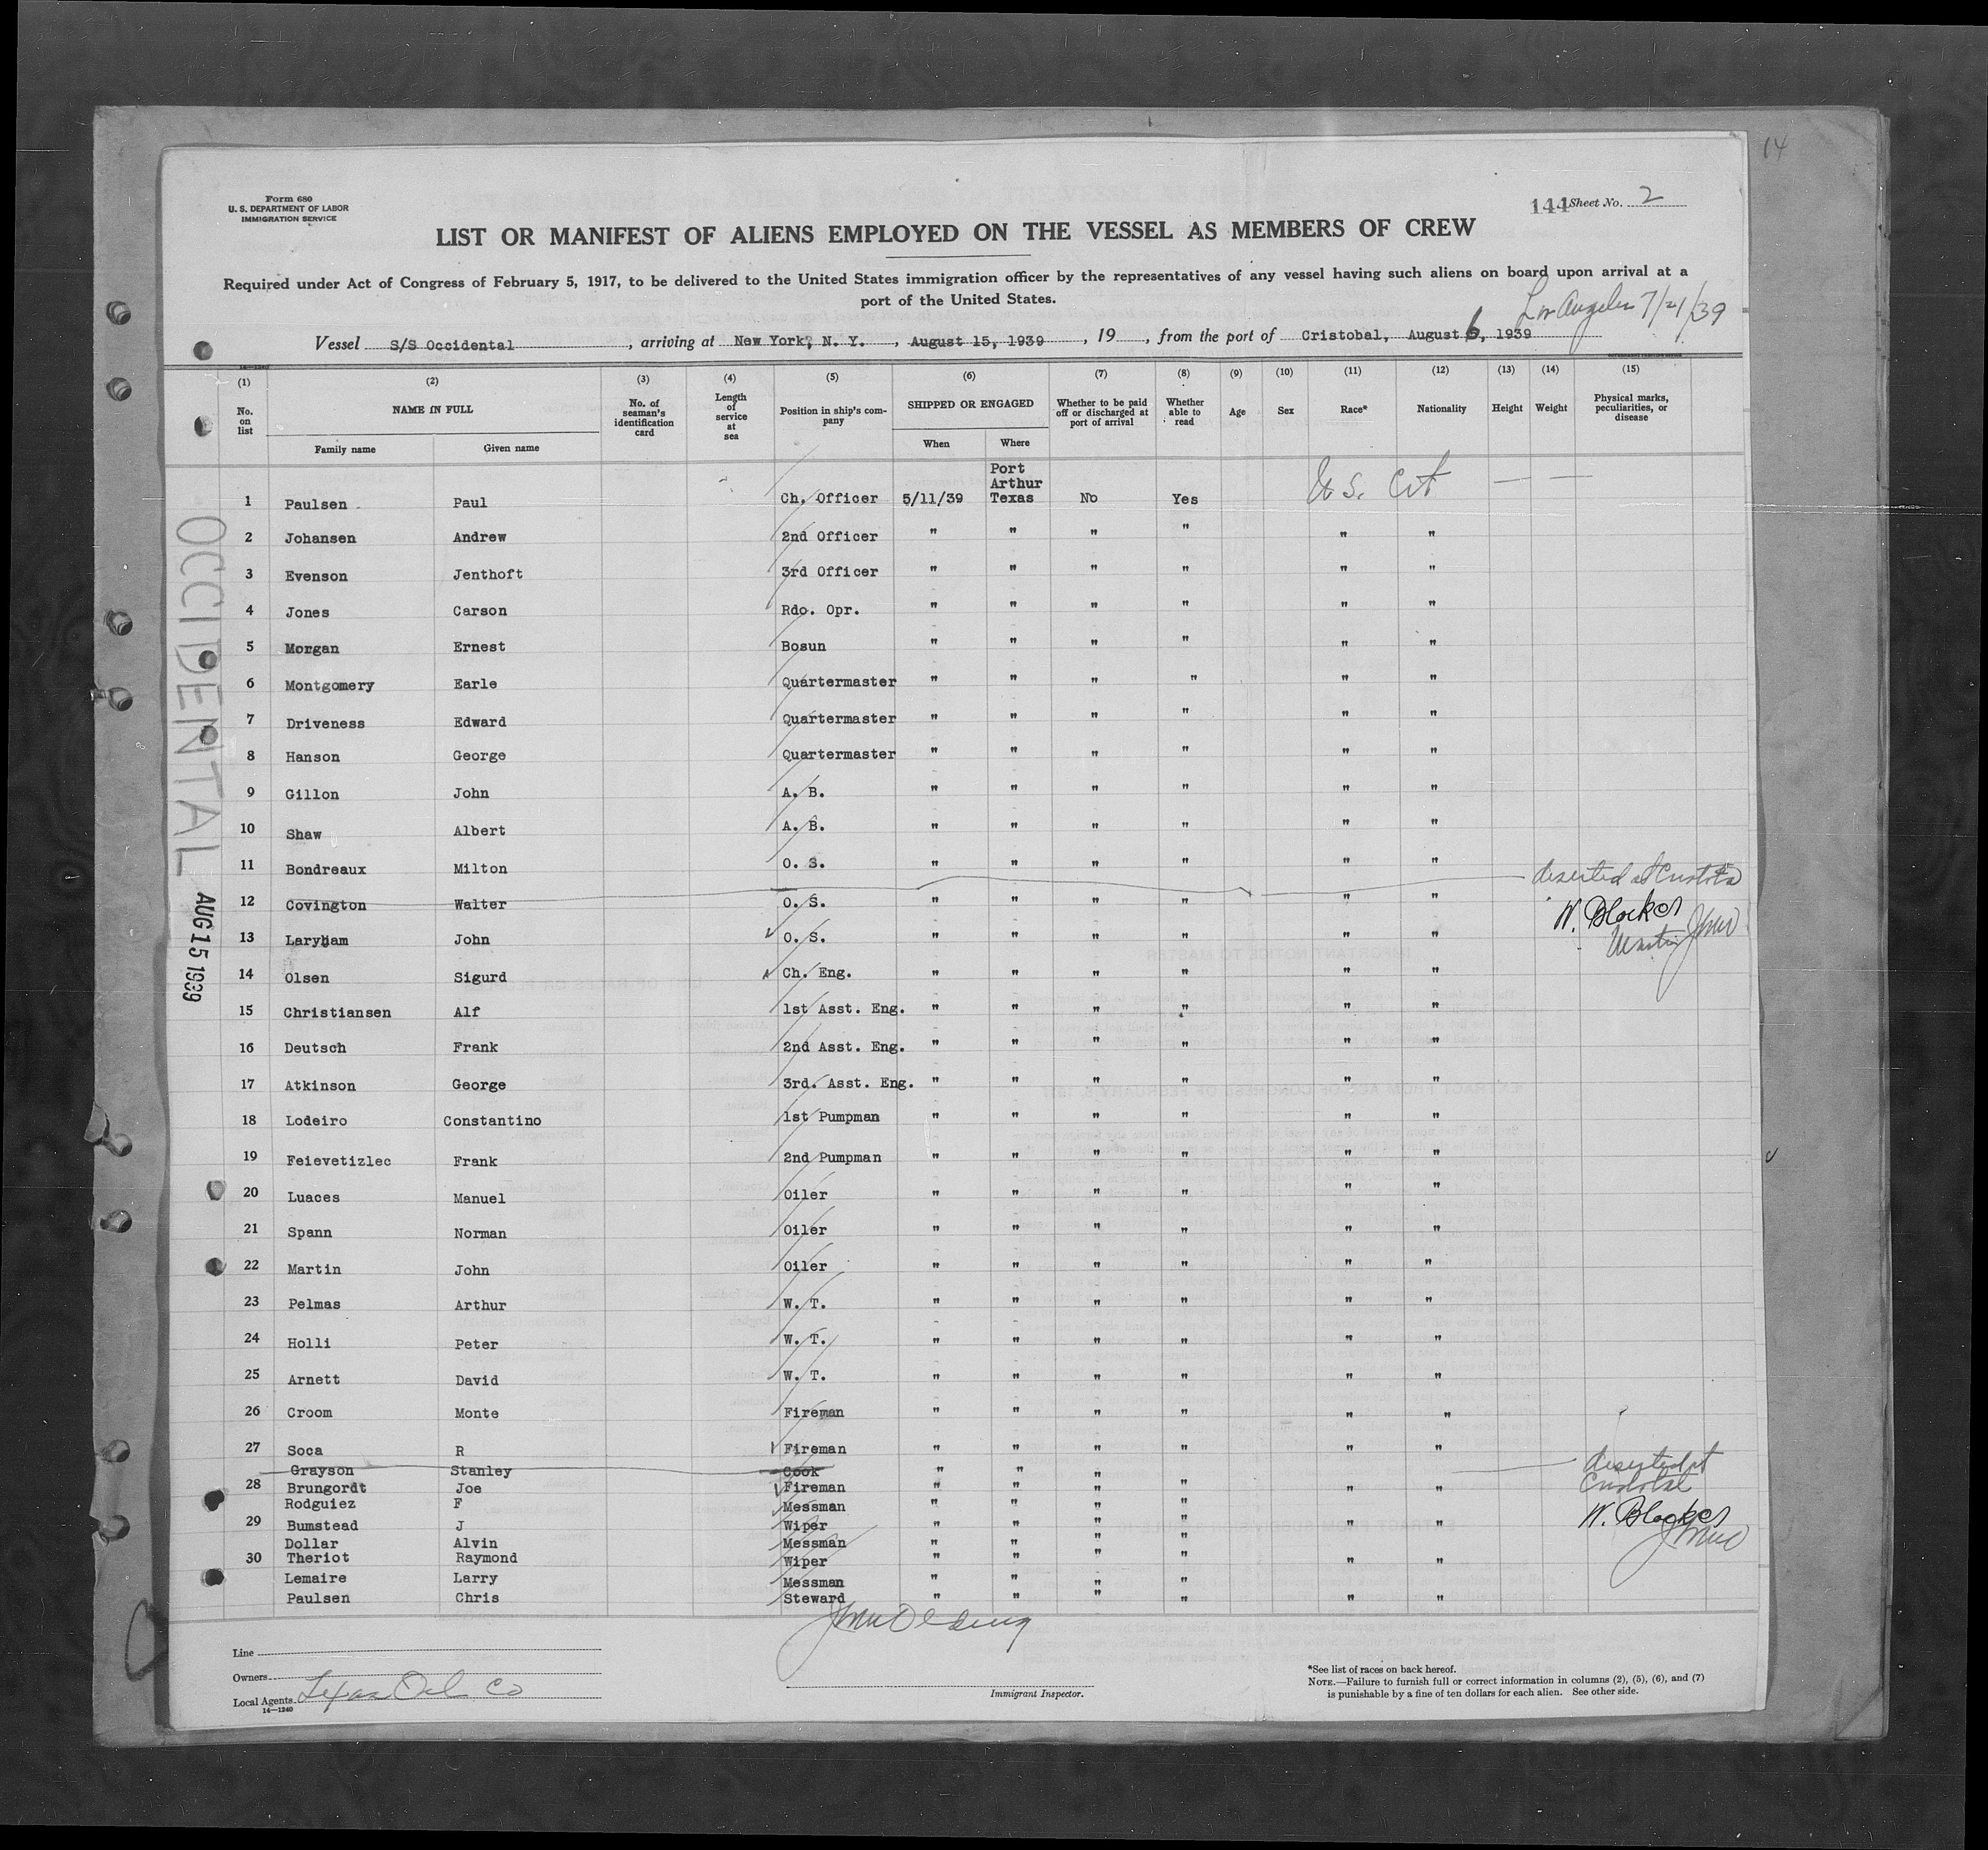 14
Form 680
U. S. DEPARTMENT OF LABOR
IMMIGRATION SERVICE
144 Sheet No. 2
LIST OR MANIFEST OF ALIENS EMPLOYED ON THE VESSEL AS MEMBERS OF CREW
Required under Act of Congress of February 5, 1917, to be delivered to the United States immigration officer by the representatives of any vessel having such aliens on board upon arrival at a
port of the United States.
Los Angeles 7/21/39
Vessel S/S Occidental , arriving at New York, N. Y. , August 15, 1939 , 19 , from the port of Cristobal, August 6, 1939
14—1240
(1) (2) (3) (4) (5) (6) (7) (8) (9) (10) (11) (12) (13) (14) (15)
No. on list NAME IN FULL No. of seaman's identification card Length of service at sea Position in ship's company SHIPPED OR ENGAGED Whether to be paid off or discharged at port of arrival Whether able to read Age Sex Race* Nationality Height Weight Physical marks, peculiarities, or disease
Family name Given name When Where
1 Paulsen Paul Ch. Officer 5/11/39 Port Arthur Texas No Yes U.S. Cit — —
2 Johansen Andrew 2nd Officer " " " " " "
3 Evenson Jenthoft 3rd Officer " " " " " "
4 Jones Carson Rdo. Opr. " " " " " "
5 Morgan Ernest Bosun " " " " " "
6 Montgomery Earle Quartermaster " " " " " "
7 Driveness Edward Quartermaster " " " " " "
8 Hanson George Quartermaster " " " " " "
9 Gillon John A. B. " " " " " "
10 Shaw Albert A. B. " " " " " "
11 Bondreaux Milton O. S. " " " " " "
12 Covington Walter O. S. " " " " " " deserted at Cristobal
W. Blocker
13 Laryham John O. S. " " " " " " Master
14 Olsen Sigurd Ch. Eng. " " " " " "
15 Christiansen Alf 1st Asst. Eng. " " " " " "
16 Deutsch Frank 2nd Asst. Eng. " " " " " "
17 Atkinson George 3rd. Asst. Eng. " " " " " "
18 Lodeiro Constantino 1st Pumpman " " " " " "
19 Feievetizlec Frank 2nd Pumpman " " " " " "
20 Luaces Manuel Oiler " " " " " "
21 Spann Norman Oiler " " " " " "
22 Martin John Oiler " " " " " "
23 Pelmas Arthur W. T. " " " " " "
24 Holli Peter W. T. " " " " " "
25 Arnett David W. T. " " " " " "
26 Croom Monte Fireman " " " " " "
27 Soca R Fireman " " " " " "
Grayson Stanley Cook " " " deserted at Cristobal
28 Brungordt Joe Fireman " " " " " "
Rodguiez F Messman " " " "
W. Blocker
29 Bumstead J Wiper " " " " " "
Dollar Alvin Messman " " " "
30 Theriot Raymond Wiper " " " " " "
Lemaire Larry Messman " " " "
Paulsen Chris Steward " " " " " "
OCCIDENTAL
AUG 15 1939
Line
Owners
Local Agents Texas Oil Co
14—1240
Immigrant Inspector.
*See list of races on back hereof.
NOTE.—Failure to furnish full or correct information in columns (2), (5), (6), and (7)
is punishable by a fine of ten dollars for each alien. See other side.